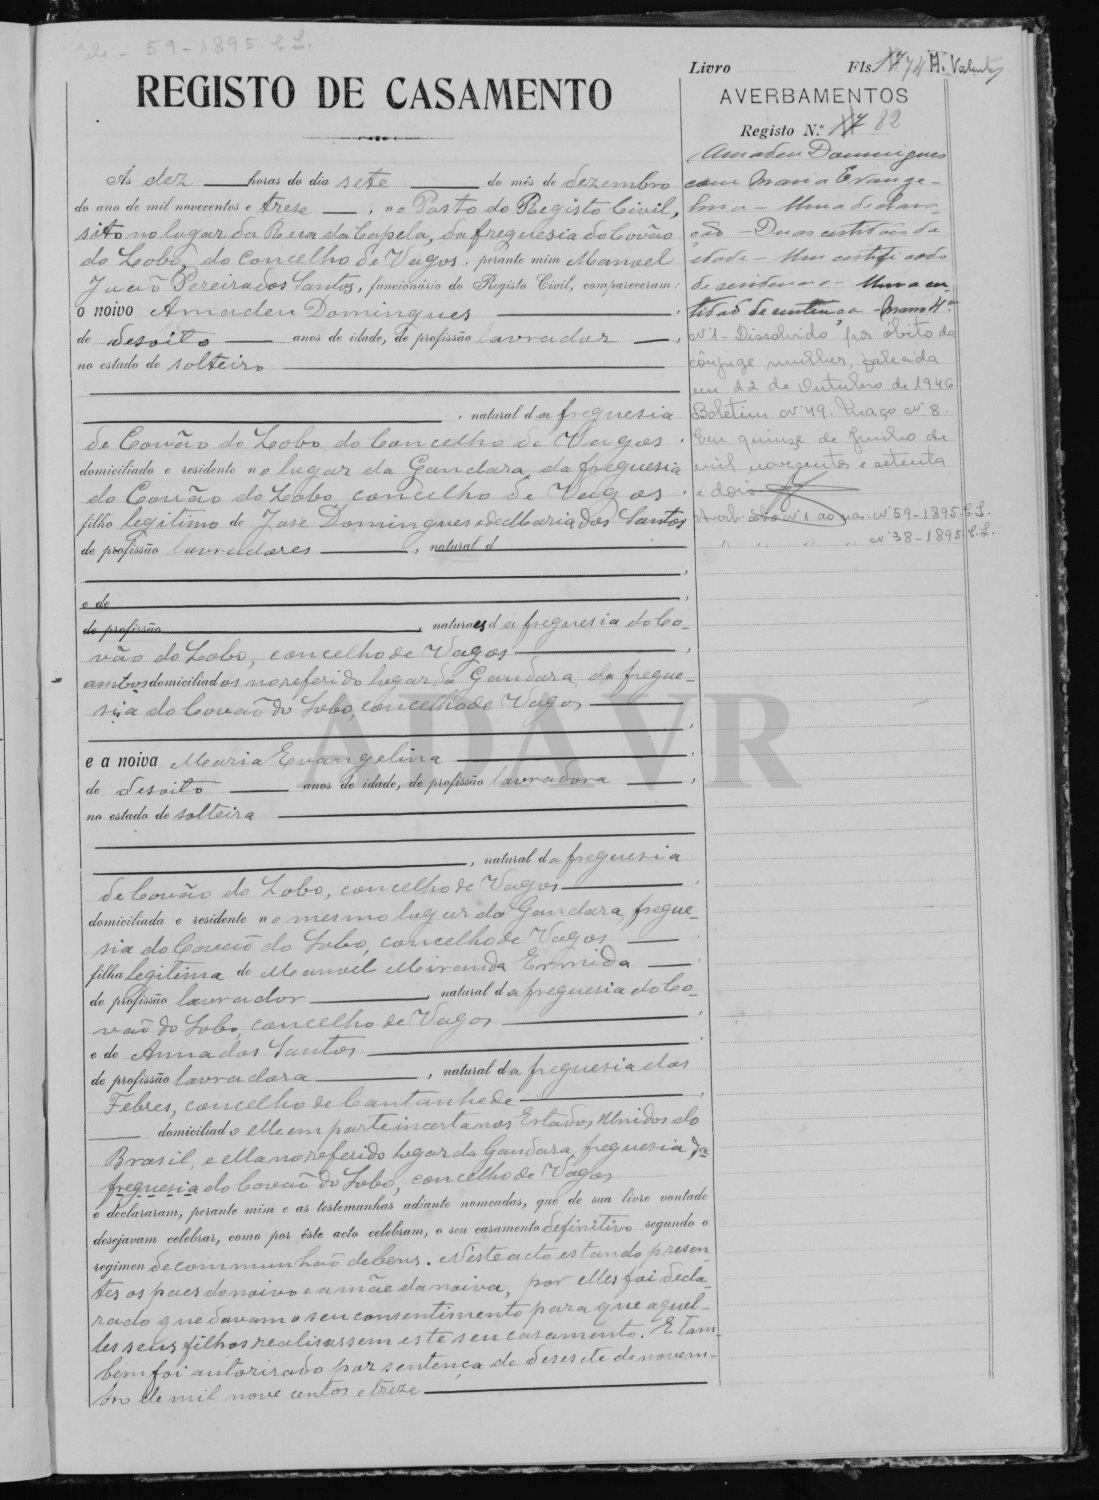 59-1895 C. L.
Livro Fls. 74 H. Valente
REGISTO DE CASAMENTO
AVERBAMENTOS
Registo N.º 17 82
Ás dez horas do dia sete do mês de dezembro
do ano de mil novecentos e trese, no Posto do Registo Civil,
sito no lugar da Rua da Capela, da freguesia do Covão
do Lobo, do concelho de Vagos, perante mim Manoel
João Pereira dos Santos, funcionário do Registo Civil, compareceram:
o noivo Amadeu Domingues,
de desoito anos de idade, de profissão lavrador,
no estado de solteiro
, natural da freguesia
de Covão do Lobo do Concelho de Vagos.
domiciliado e residente no lugar da Gandara, da freguesia
do Covão do Lobo, concelho de Vagos.
filho legitimo de Jose Domingues e de Maria dos Santos
de profissão lavradores, natural d
,
e de ,
de profissão , naturaes da freguesia do Co-
vão do Lobo, concelho de Vagos,
ambos domiciliados no referido logar da Gandara, da fregue-
sia do Covão do Lobo, concelho de Vagos
,
e a noiva Maria Evangelina,
de desoito anos de idade, de profissão lavradora,
no estado de solteira
, natural da freguesia
de Covão do Lobo, concelho de Vagos,
domiciliada e residente no mesmo lugar da Gandara, fregue-
sia do Covão do Lobo, concelho de Vagos
filha legitima de Manoel Miranda Ermida
de profissão lavrador, natural da freguesia do Co-
vão do Lobo, concelho de Vagos,
e de Anna dos Santos
de profissão lavradora, natural da freguesia das
Febres, concelho de Cantanhede,
domiciliado elle em parte incerta nos Estados Unidos do
Brasil, e ella no referido logar da Gandara, freguesia, da
freguesia do Covão do Lobo, concelho de Vagos
e declararam, perante mim e as testemunhas adiante nomeadas, que de sua livre vontade
desejavam celebrar, como por êste acto celebram, o seu casamento definitivo segundo o
regimen de communhão de bens. Neste acto estando presen-
tes os paes do noivo e a mãe da noiva, por elles foi decla-
rado que davam o seu consentimento para que aquel-
les seus filhos realisassem este seu casamento. E tam-
bem foi autorisado por sentença de desesete de novem-
bro de mil nove centos e treze
Amadeu Domingues
com Maria Evange-
lina - Uma declara-
ção - Duas certidões de
idade - Um certificado
de residencia - Uma cer-
tidão de sentença - Maço 4º
Nº 1 - Dissolvido por óbito da
cônjuge mulher, falecida
em 22 de Outubro de 1946.
Boletim nº 49. Maço nº 8.
Em quinze de Junho de
mil novecentos e setenta
e dois
Averb. nº 1 ao nas. nº 59-1895 C. L.
" " " " nº 38-1895 C. L.
ADAVR